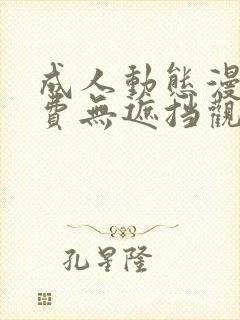 成人動態漫
費無遮挡觀
孔星隆